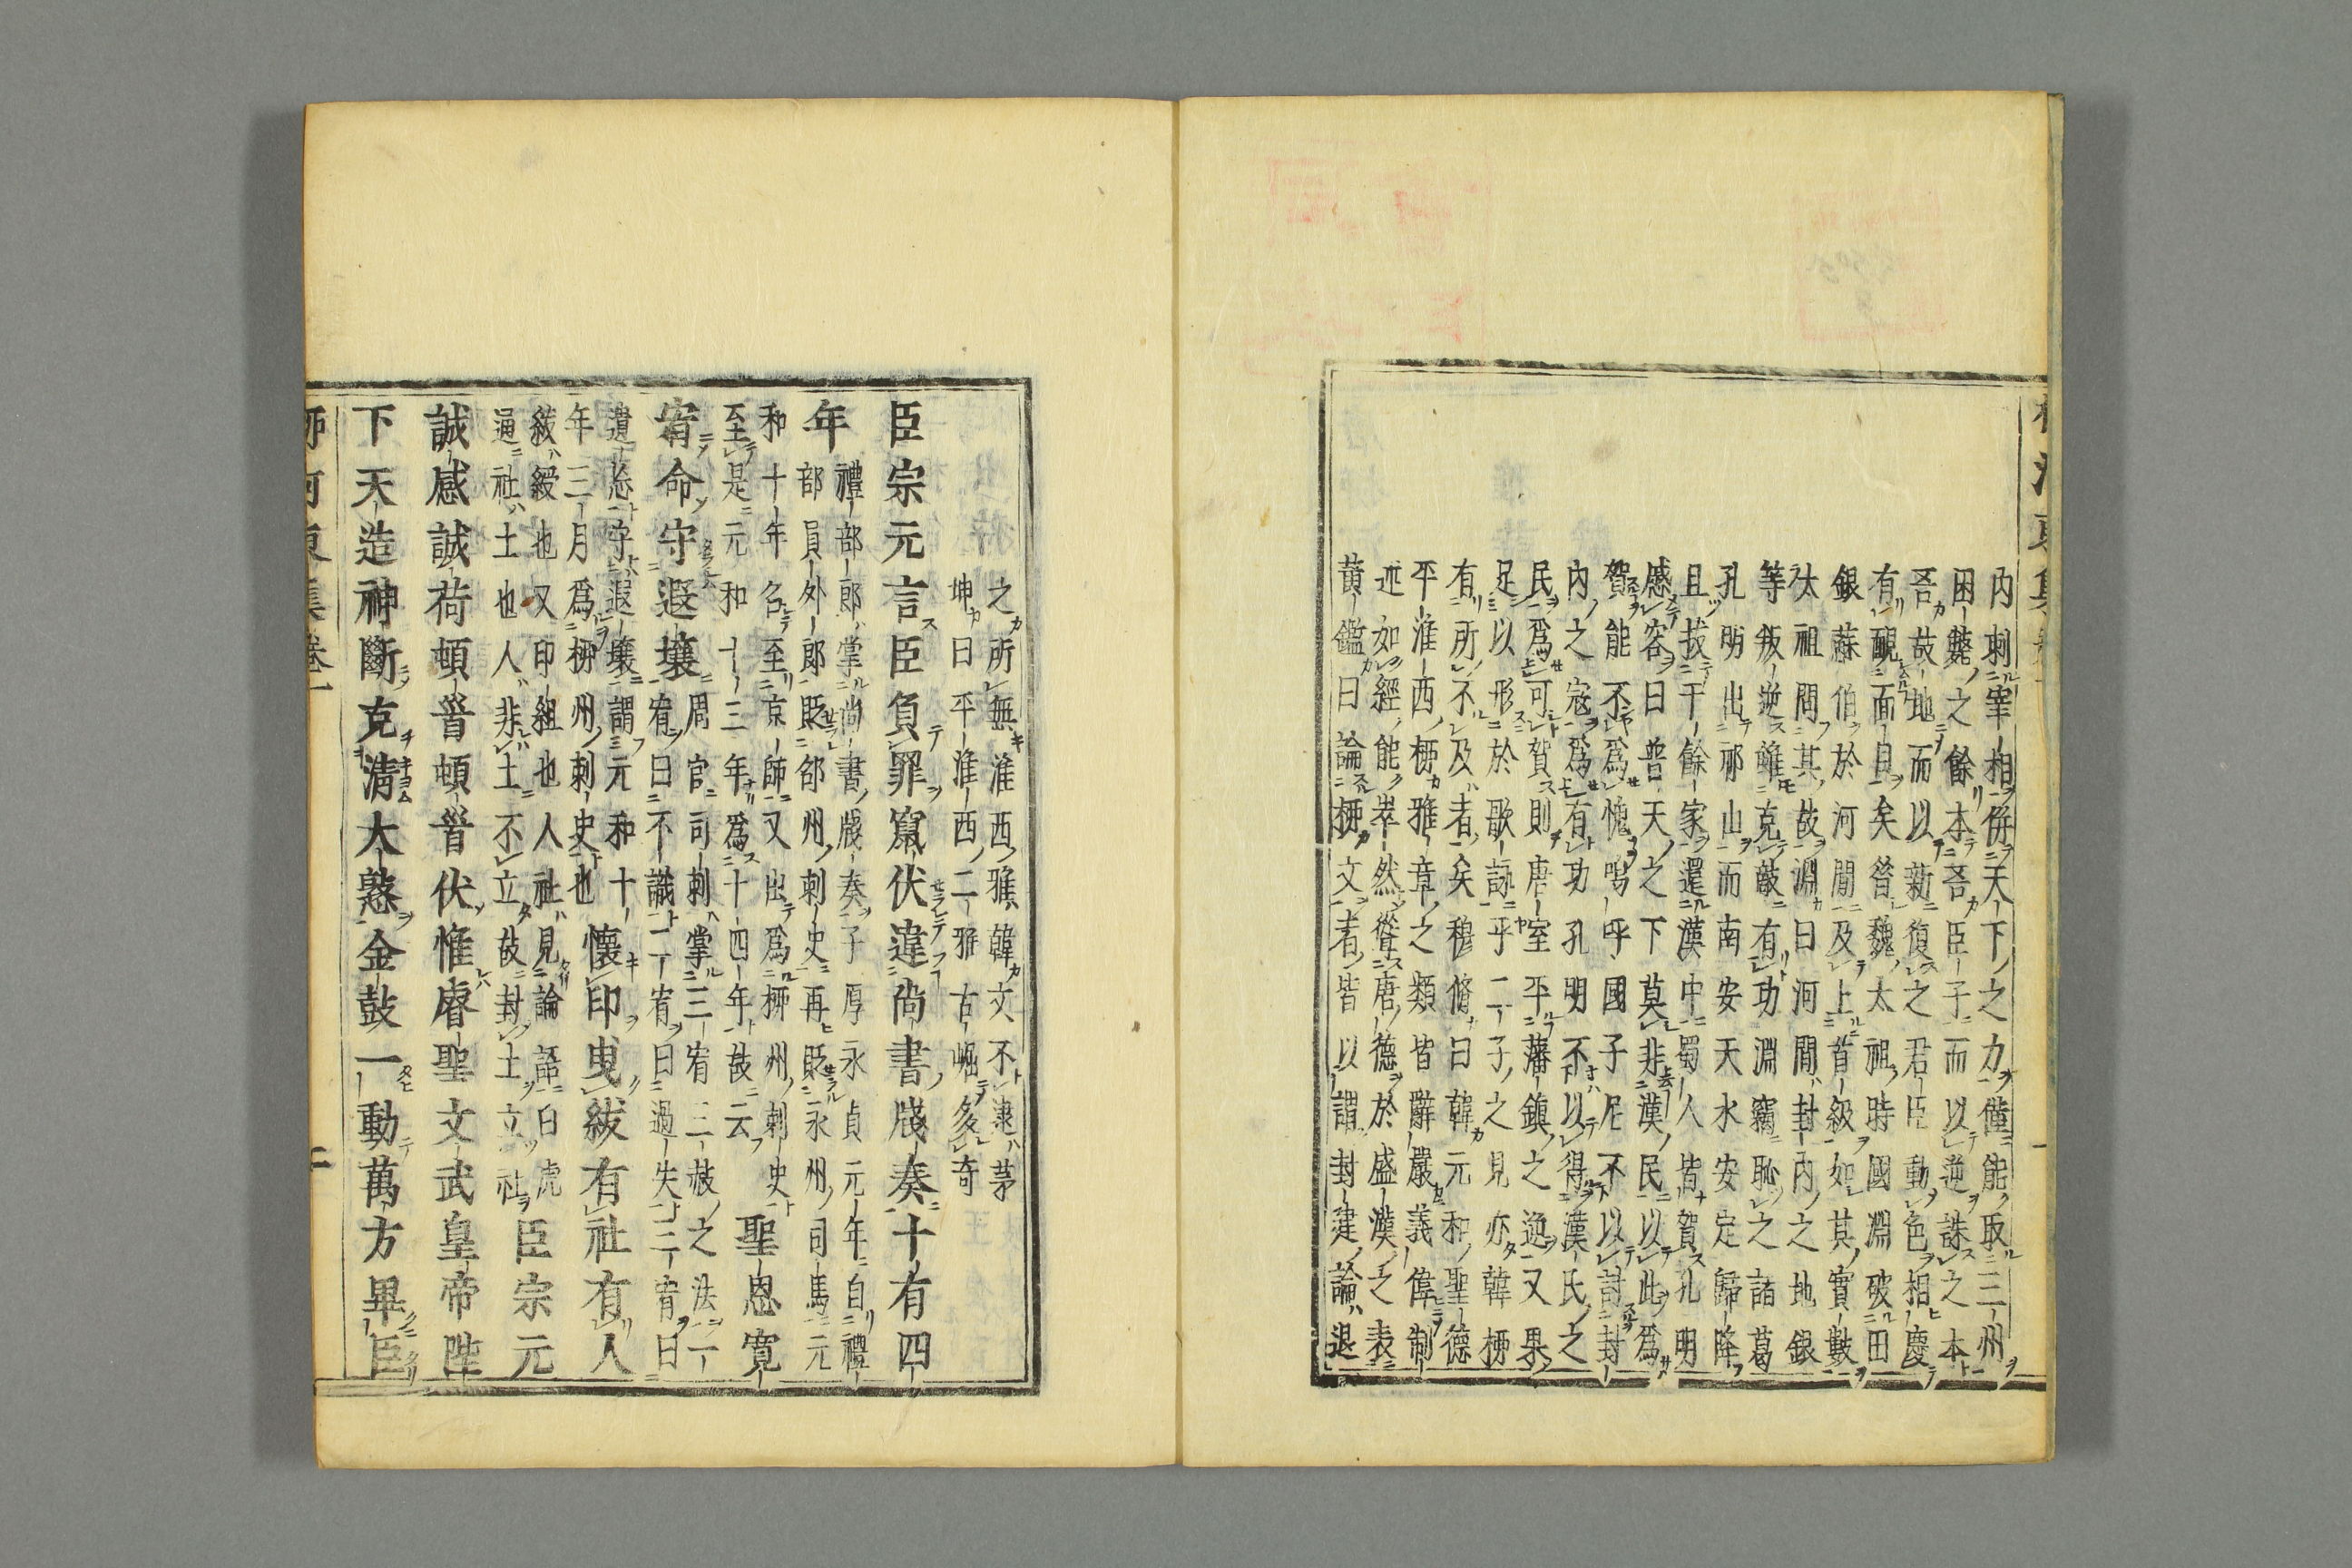 内刺宰相併天下之力僅能取三州
之餘本吾臣子而以逆誅之本
吾故地而以新復之君臣動色相慶
有靦面目矣昝魏太祖時國淵破田
銀蘇伯於河間及上首級如其實數
太祖問其故淵曰河間封内之地銀
等叛逆雖克敵有功淵竊恥之諸葛
孔明出祁山而南安天水安定歸降
且拔千餘家還漢中蜀人皆賀孔明
慼容曰普天之下莫非漢民以此爲
賀能不爲愧嗚呼國子尼不以討封
内之寇爲有功孔明不以得漢氏之
民爲可賀則唐室平藩鎮之逆又果
足以形於歌詠乎二子之見亦韓柳
有所不及者矣穆脩曰韓元和聖德
平淮西柳雅章之類皆辭嚴義偉制
述如經能崒然聳唐德於盛漢之表
黄鑑曰論柳文者皆以謂封建論退
之所無淮西雅韓文不逮茅
坤曰平淮西二雅古崛多奇
臣宗元言臣負罪竄伏違尚書牋奏十有四
年
禮部郎掌尚書牋奏子厚永貞元年自禮
部員外郎貶邵州刺史再貶永州司馬元
和十年名至京師又出爲柳州刺史
至是元和十三年爲十四年故云
聖恩寬
宥命守遐壤
周官司刺掌三宥三赦之法一
宥曰不識二宥曰過失三宥曰
遺忘守遐壤謂元和十
年三月爲柳州刺史也
懷印曳紱有社有人
紱綬也又印組也人社見論語白虎
通社土也人非土不立故封土立社
臣宗元
誠感誠荷頓首頓首伏惟睿聖文武皇帝陛
下天造神斷克清大憝金鼓一動萬方畢臣
柳河東集卷一
二